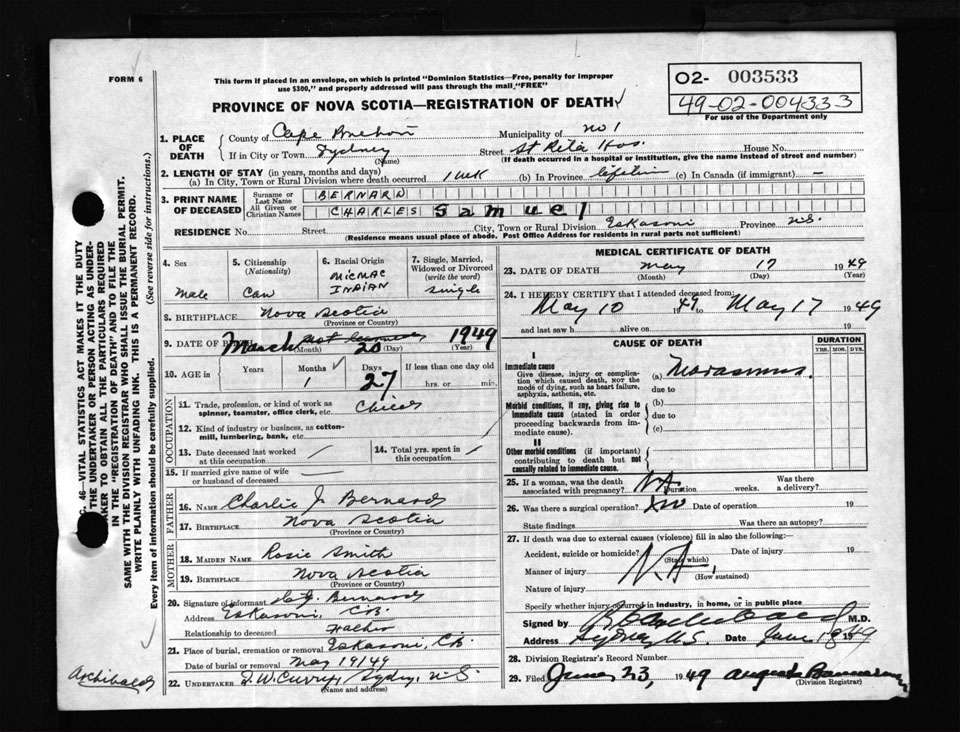 FORM 6
This form if placed in an envelope, on which is printed "Dominion Statistics—Free, penalty for improper
use $300," and properly addressed will pass through the mail "FREE"
PROVINCE OF NOVA SCOTIA—REGISTRATION OF DEATH
O2- 003533
49-02-004333
For use of the Department only
1. PLACE OF DEATH
County of Cape Breton Municipality of No 1
If in City or Town Sydney (Name) Street St Rita Hos. House No.
(If death occurred in a hospital or institution, give the name instead of street and number)
2. LENGTH OF STAY (in years, months and days)
(a) In City, Town or Rural Division where death occurred 1 wk (b) In Province lifetime (c) In Canada (if immigrant) —
3. PRINT NAME OF DECEASED
Surname or Last Name BERNARD
All Given or Christian Names CHARLES Samuel
RESIDENCE No. Street City, Town or Rural Division Eskasoni Province N.S.
(Residence means usual place of abode. Post Office Address for residents in rural parts not sufficient)
4. Sex Male
5. Citizenship (Nationality) Can
6. Racial Origin MICMAC INDIAN
7. Single, Married, Widowed or Divorced (write the word) Single
8. BIRTHPLACE Nova Scotia
(Province or Country)
9. DATE OF BIRTH March 20 1949
(Month) (Day) (Year)
10. AGE in Years Months 1 Days 27 If less than one day old hrs. or min.
OCCUPATION
11. Trade, profession, or kind of work as spinner, teamster, office clerk, etc. Child
12. Kind of industry or business, as cotton-mill, lumbering, bank, etc.
13. Date deceased last worked at this occupation
14. Total yrs. spent in this occupation
15. If married give name of wife or husband of deceased
FATHER
16. NAME Charlie J Bernard
17. BIRTHPLACE Nova Scotia
(Province or Country)
MOTHER
18. MAIDEN NAME Rosie Smith
19. BIRTHPLACE Nova Scotia
(Province or Country)
20. Signature of informant C. J. Bernard
Address Eskasoni, C.B.
Relationship to deceased Father
21. Place of burial, cremation or removal Eskasoni, C.B.
Date of burial or removal May 19/49
22. UNDERTAKER J. W. Curry, Sydney, N.S.
(Name and address)
MEDICAL CERTIFICATE OF DEATH
23. DATE OF DEATH May 17 1949
(Month) (Day) (Year)
24. I HEREBY CERTIFY that I attended deceased from:
May 10 1949 to May 17 1949
and last saw h alive on 19
CAUSE OF DEATH
DURATION
YRS. MOS. DYS.
I
Immediate cause
Give disease, injury or complication which caused death, NOT the mode of dying, such as heart failure, asphyxia, asthenia, etc.
(a) Marasmus.
due to
Morbid conditions, if any, giving rise to immediate cause (stated in order proceeding backwards from immediate cause).
(b)
due to
(c)
II
Other morbid conditions (if important) contributing to death but not causally related to immediate cause.
25. If a woman, was the death associated with pregnancy? NA Duration weeks. Was there a delivery?
26. Was there a surgical operation? No Date of operation 19
State findings Was there an autopsy?
27. If death was due to external causes (violence) fill in also the following:—
Accident, suicide or homicide? (State which) Date of injury 19
Manner of injury N.A. (How sustained)
Nature of injury
Specify whether injury occurred in industry, in home, or in public place
Signed by M.D.
Address Sydney N.S. Date June 18 1949
28. Division Registrar's Record Number
29. Filed June 23, 1949 (Division Registrar)
C. 46—VITAL STATISTICS ACT MAKES IT THE DUTY
THE UNDERTAKER OR PERSON ACTING AS UNDER-
TAKER TO OBTAIN ALL THE PARTICULARS REQUIRED
IN THE "REGISTRATION OF DEATH" AND TO FILE THE
SAME WITH THE DIVISION REGISTRAR WHO SHALL ISSUE THE BURIAL PERMIT.
WRITE PLAINLY WITH UNFADING INK. THIS IS A PERMANENT RECORD.
Every item of information should be carefully supplied. (See reverse side for instructions.)
Archibald